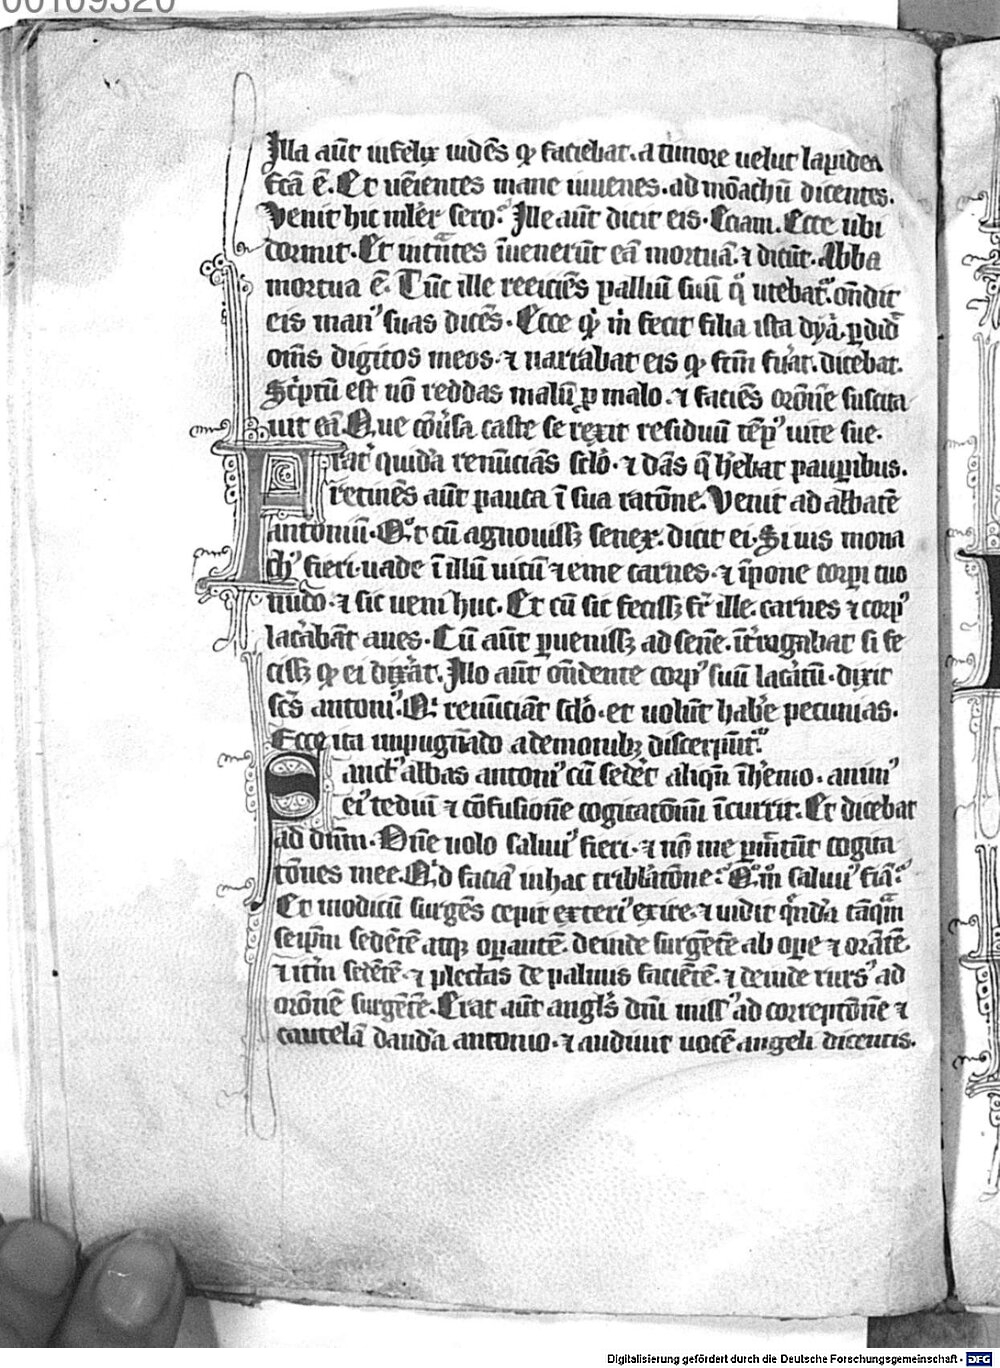 00109320
Illa aūt infelix uidēs ꝙ faciebat. a timore uelut lapidea
fcā ē. Et ueīentes mane iuuenes. ad mōachū dicentes.
Venit hic mlẻr sero. Ille aūt dicit eis. Etiam. Ecce ubi
dormit. Et intntes īuenerūt eā mortuā. ⁊ dicūt. Abba
mortua ē. Tūc ille reeiciēs palliū suū q̄ utebat. oñdit
eis manꝰ suas dicēs. Ecce qͥ m̄ fecit filia ista dyā. ꝑdid
om̄s digitos meos. ⁊ narrabat eis ꝙ fcm̄ fuat. dicebat.
Scptū est nō reddas malū ꝓ malo. ⁊ faciēs orōnē suscita
uit eā. Que cōuͥsa caste se rexit residuū tēpꝰ uite sue.
Frat quidā renūciās sclo. ⁊ dās q̄ hēbat pauꝑibus.
retinēs aūt pauca ī sua ratōne. Venit ad abbatē
antoniū. Qt cū agnouissꝫ senex. dicit ei. Si uis mona
chꝰ fieri. uade ī illū uicū ⁊ eme carnes. ⁊ īpone corpi tuo
nudo. ⁊ sic ueni huc. Et cū sic fecissꝫ fr̄ ille. carnes ⁊ corpꝰ
lacabāt aues. Cū aūt ꝑuenissꝫ ad senē. īterogabat si fe
cissꝫ ꝙ ei dixat. Illo aūt oñdente corpꝰ suū lacatū. dixit
scs antoniꝰ. Qi renūciāt sclo. et uolūt habe pecunias.
Ecce ita impugnādo a demonibꝫ discerpūt.
Sanctꝰ abbas antoniꝰ cū sedet aliqn̄ ī hemo. animꝰ
eiꝰ tediū ⁊ cōfusionē cogitatōnū īcurrit. Et dicebat
ad dn̄m. Dn̄e uolo saluuꝰ fieri. ⁊ nō me ꝑmittūt cogita
tōnes mee. Qd faciā in hac tribl̄atōne. Qm̄ saluuꝰ fiā.
Et modicū surgēs cepit exteriꝰ exire. ⁊ uidit qndā tāqm̄
seipm̄ sedētē atqꝫ oꝑantē. deinde surgētē ab oꝑe ⁊ orātē.
⁊ itm̄ sedētē. ⁊ plectas de palmis faciētē. ⁊ deinde rursꝰ ad
orōnē surgētē. Erat aūt angls dn̄i missꝰ ad correptōnē ⁊
cautelā dandā antonio. ⁊ audiuit uocē angeli dicentis.
Digitalisierung gefördert durch die Deutsche Forschungsgemeinschaft - DFG